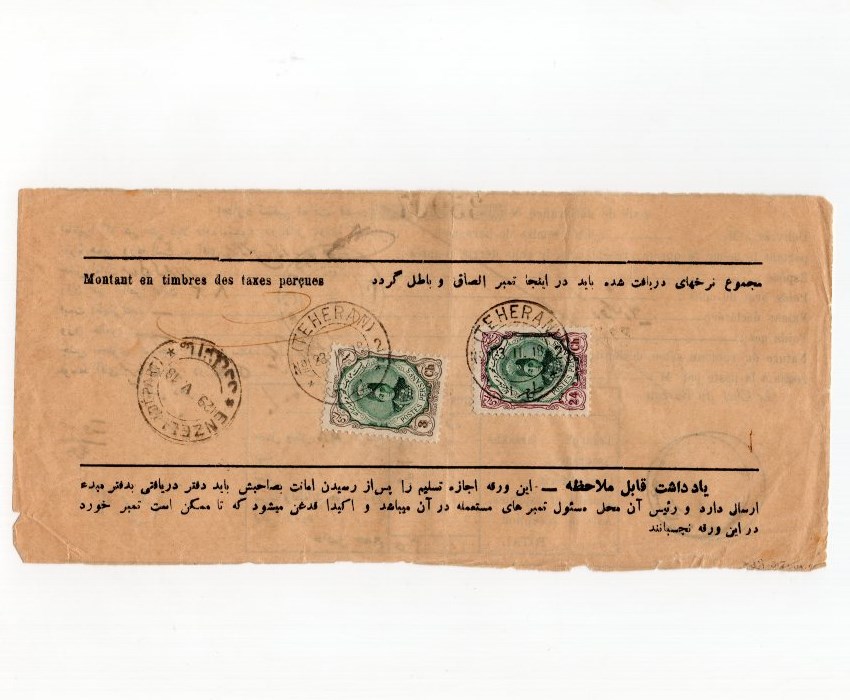 Montant en timbres des taxes perçues
مجموع نرخهای دریافت شده باید در اینجا تمبر الصاق و باطل گردد
TEHERAN
TEHERAN
3 Ch
24 Ch
POSTES PERSANES
ENZELI (DEPART)
یادداشت قابل ملاحظه — این ورقه اجازه تسلیم را پس از رسیدن امانت بصاحبش باید دفتر دریافتی بدفتر مبدء
ارسال دارد و رئیس آن محل مسئول تمبر های مستعمله در آن میباشد و اکیدا قدغن میشود که تا ممکن است تمبر خورد
در این ورقه نچسبانند